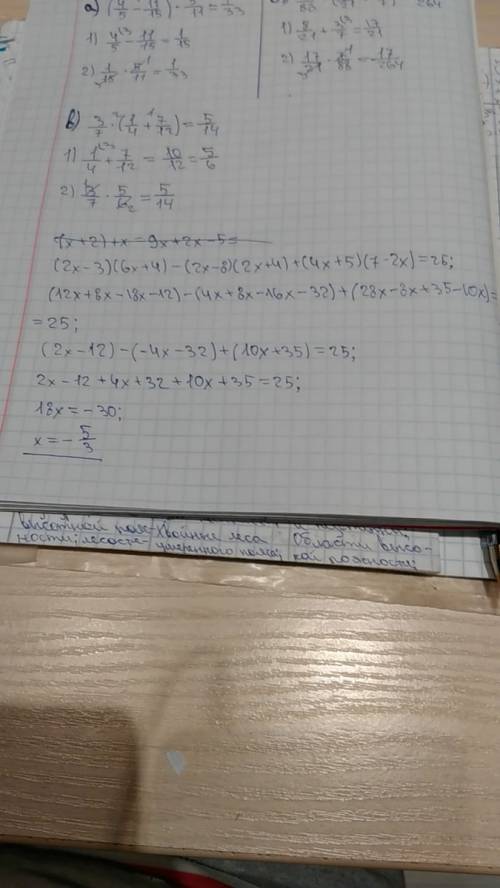 а) (4/5 - 11/15) · 5/11 = 1/33
1) 4/5 - 11/15 = 1/15
2) 1/15 · 5/11 = 1/33
264
1) 8/21 + 3/7 = 17/21
2) 17/21 · 7/88 = -17/264
в) 3/7 · (1/4 + 7/12) = 5/14
1) 1/4 + 7/12 = 10/12 = 5/6
2) 3/7 · 5/6 = 5/14
7(x+2)+x=9x+2x-5=
(2x-3)(6x+4)-(2x-8)(2x+4)+(4x+5)(7-2x)=25;
(12x+8x-18x-12)-(4x+8x-16x-32)+(28x-8x+35-10x)=
=25;
(2x-12)-(-4x-32)+(10x+35)=25;
2x-12+4x+32+10x+35=25;
18x=-30;
x=-5/3
высотной пояс- хвойные леса
ности; лесосте- умеренного пояса; Области высо-
кой поясности;